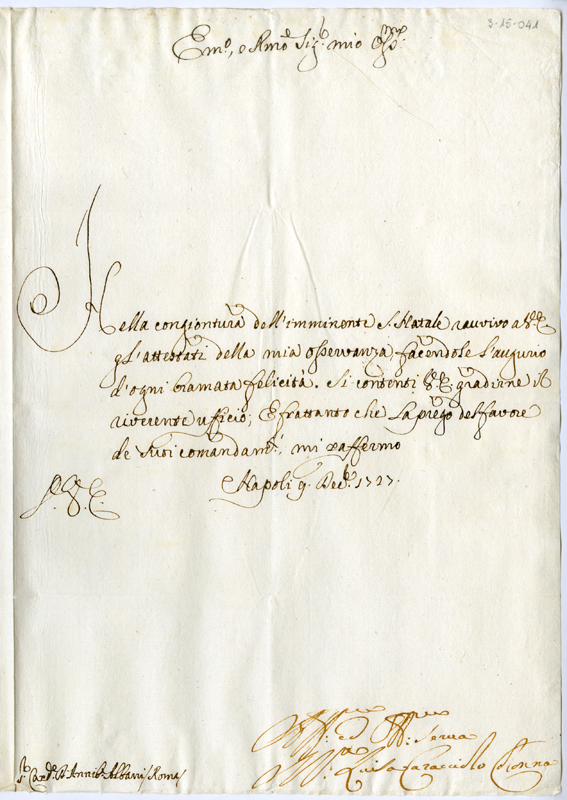 3-15-041
Em.º, e Rmo Sig.r mio Oss.mo
Nella congiontura dell'imminente S. Natale ravvivo a V.E.
gl'attestati della mia osservanza facendole l'augurio
d'ogni bramata felicità. Si contenti V.E. gradirne il
riverente ufficio; E frattanto che La priego del favore
de Suoi comandam.ti, mi raffermo
Napoli 9. Dec.e 1727.
S.r Card.e Annib.e Albani / Roma /
Aff.ma ed Obb.ma Serva
Luisa Caracciolo Colonna